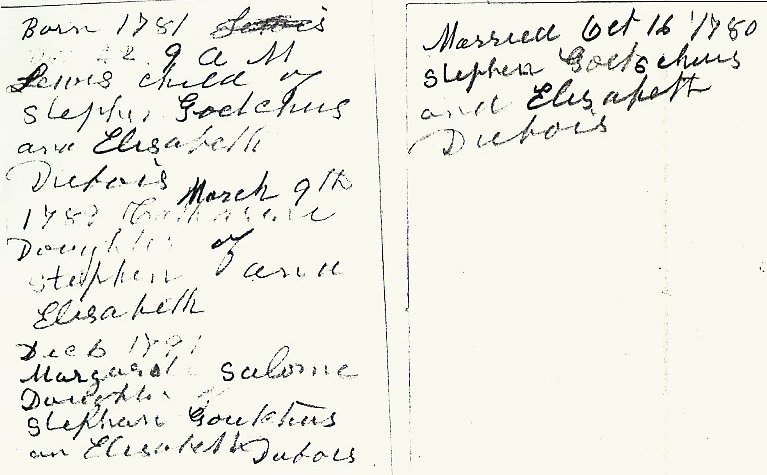 Born 1781
9 A M
Lewis child of
Stephen Goetchus
and Elisabeth
Dubois
March 9th
178
Daughter of
Stephen and
Elisabeth
Dec 1791
Margaret Salome
Daughter
Stephan Goutchus
an Elisabeth Dubois
Married Oct 16 1780
Stephen Goetschus
and Elisabeth
Dubois